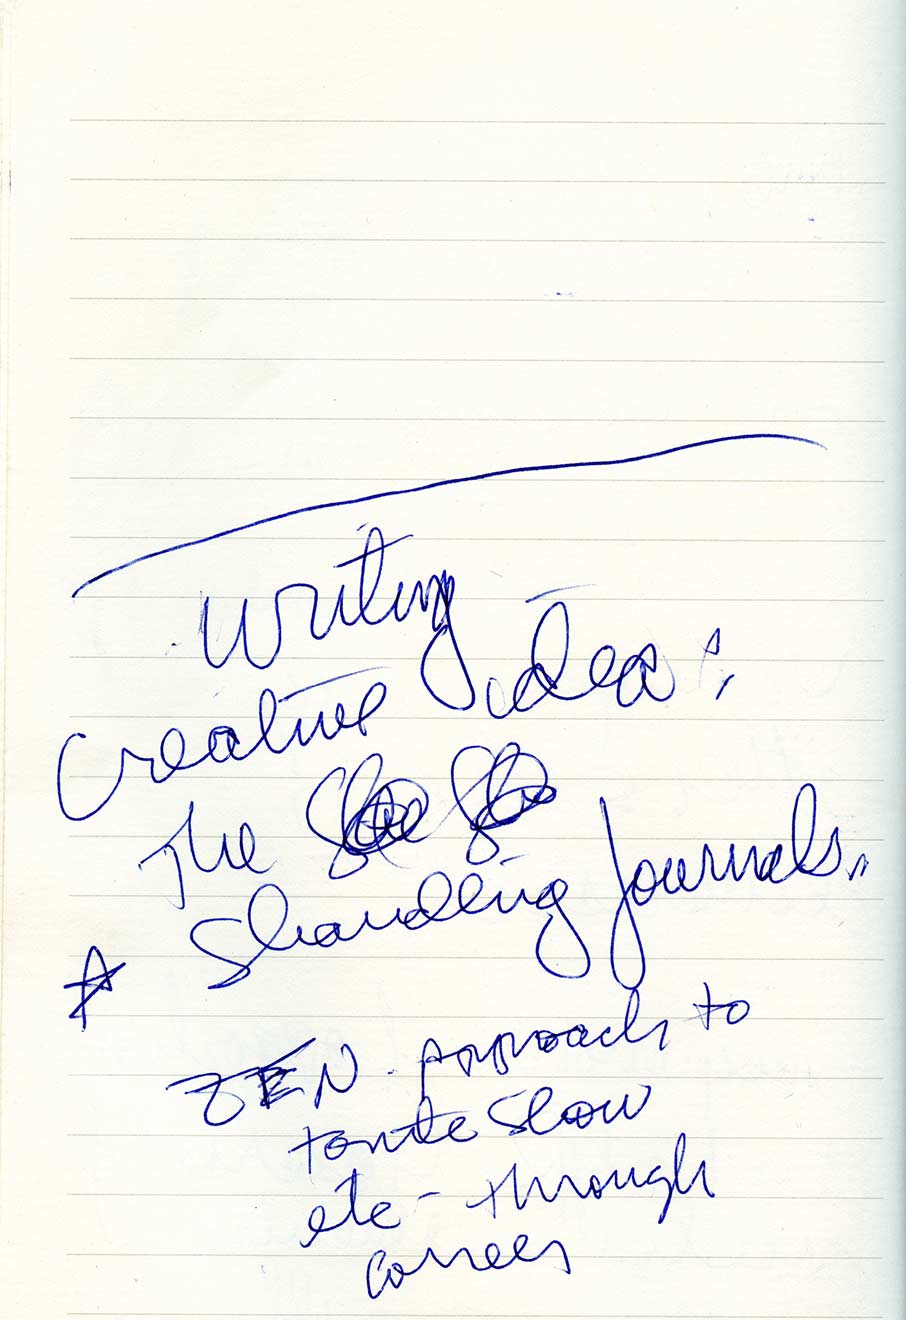 Writing
Creative idea:
The
Shandling Journals.
ZEN approach to
Tonite Show
etc - through
career